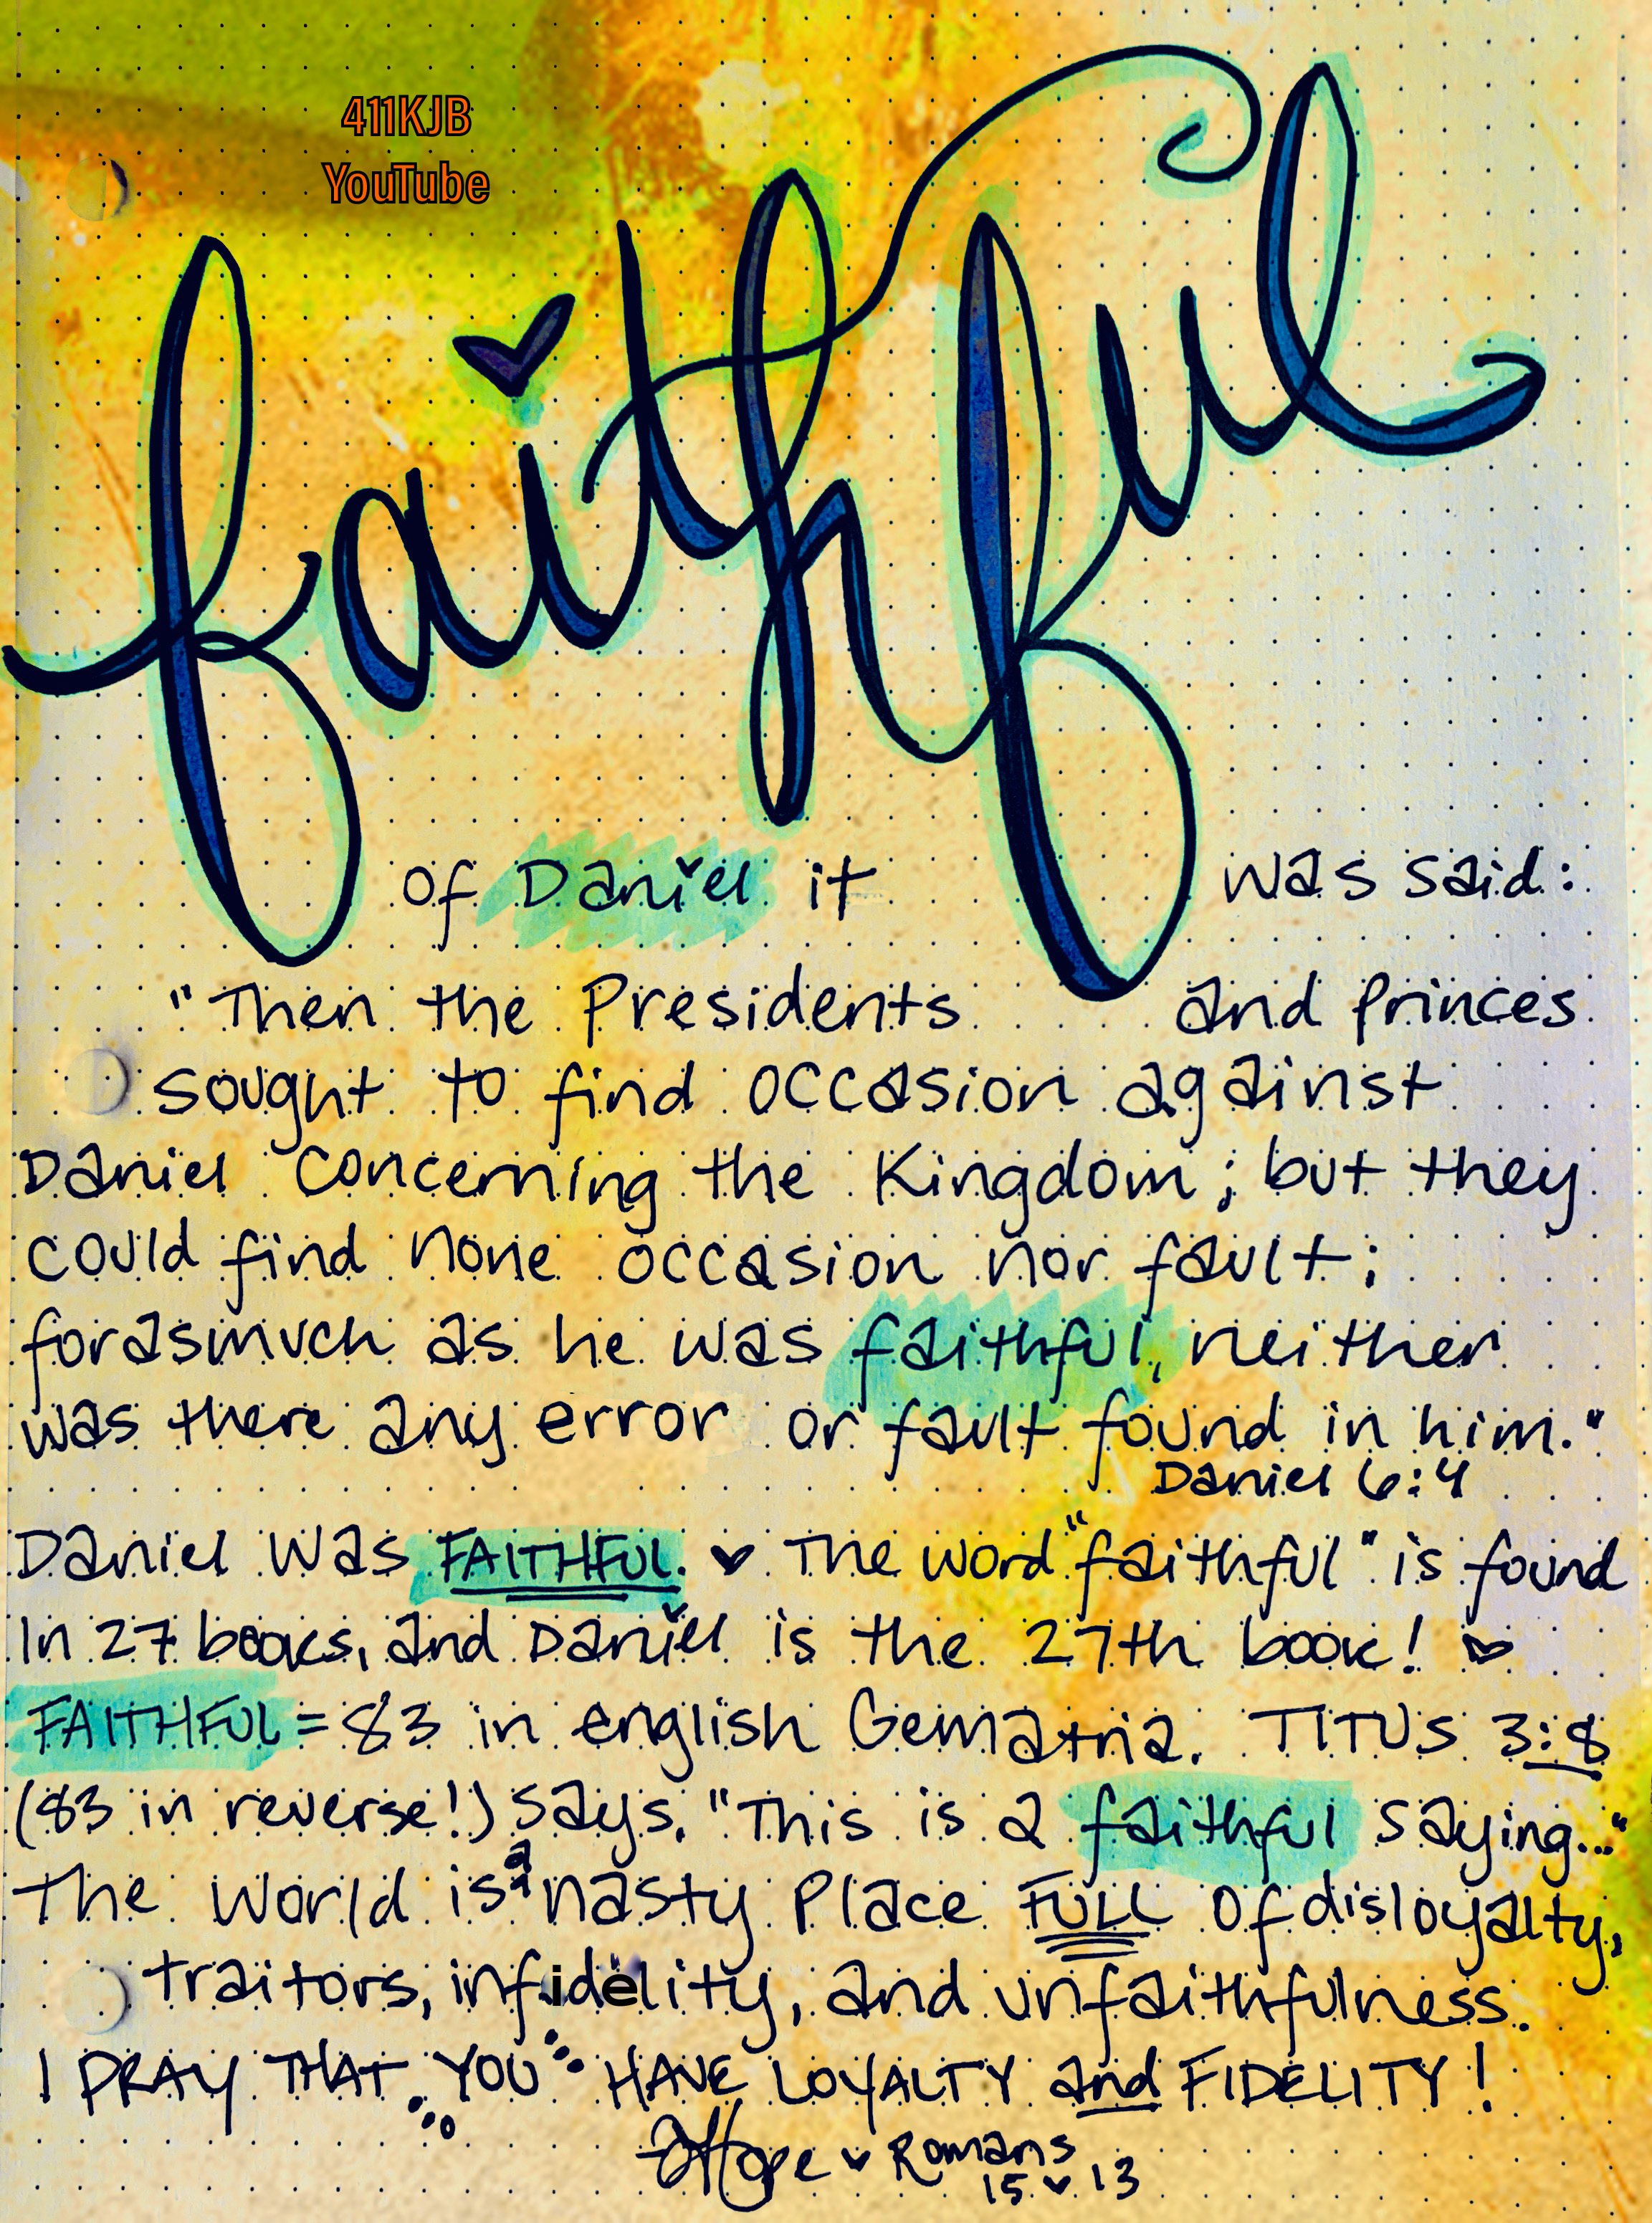 411KJB
YouTube
faithful
of Daniel it was said:
"Then the Presidents and Princes
sought to find occasion against
Daniel concerning the Kingdom; but they
could find none occasion nor fault;
forasmuch as he was faithful, neither
was there any error or fault found in him."
Daniel 6:4
Daniel was FAITHFUL. ♥ The word "faithful" is found
in 27 books, and Daniel is the 27th book! ♥
FAITHFUL = 83 in english Gematria. TITUS 3:8
(83 in reverse!) says, "This is a faithful saying..."
The world is a nasty place FULL of disloyalty,
traitors, infidelity, and unfaithfulness.
I PRAY THAT YOU HAVE LOYALTY and FIDELITY!
Hope ♥ Romans
15 ♥ 13